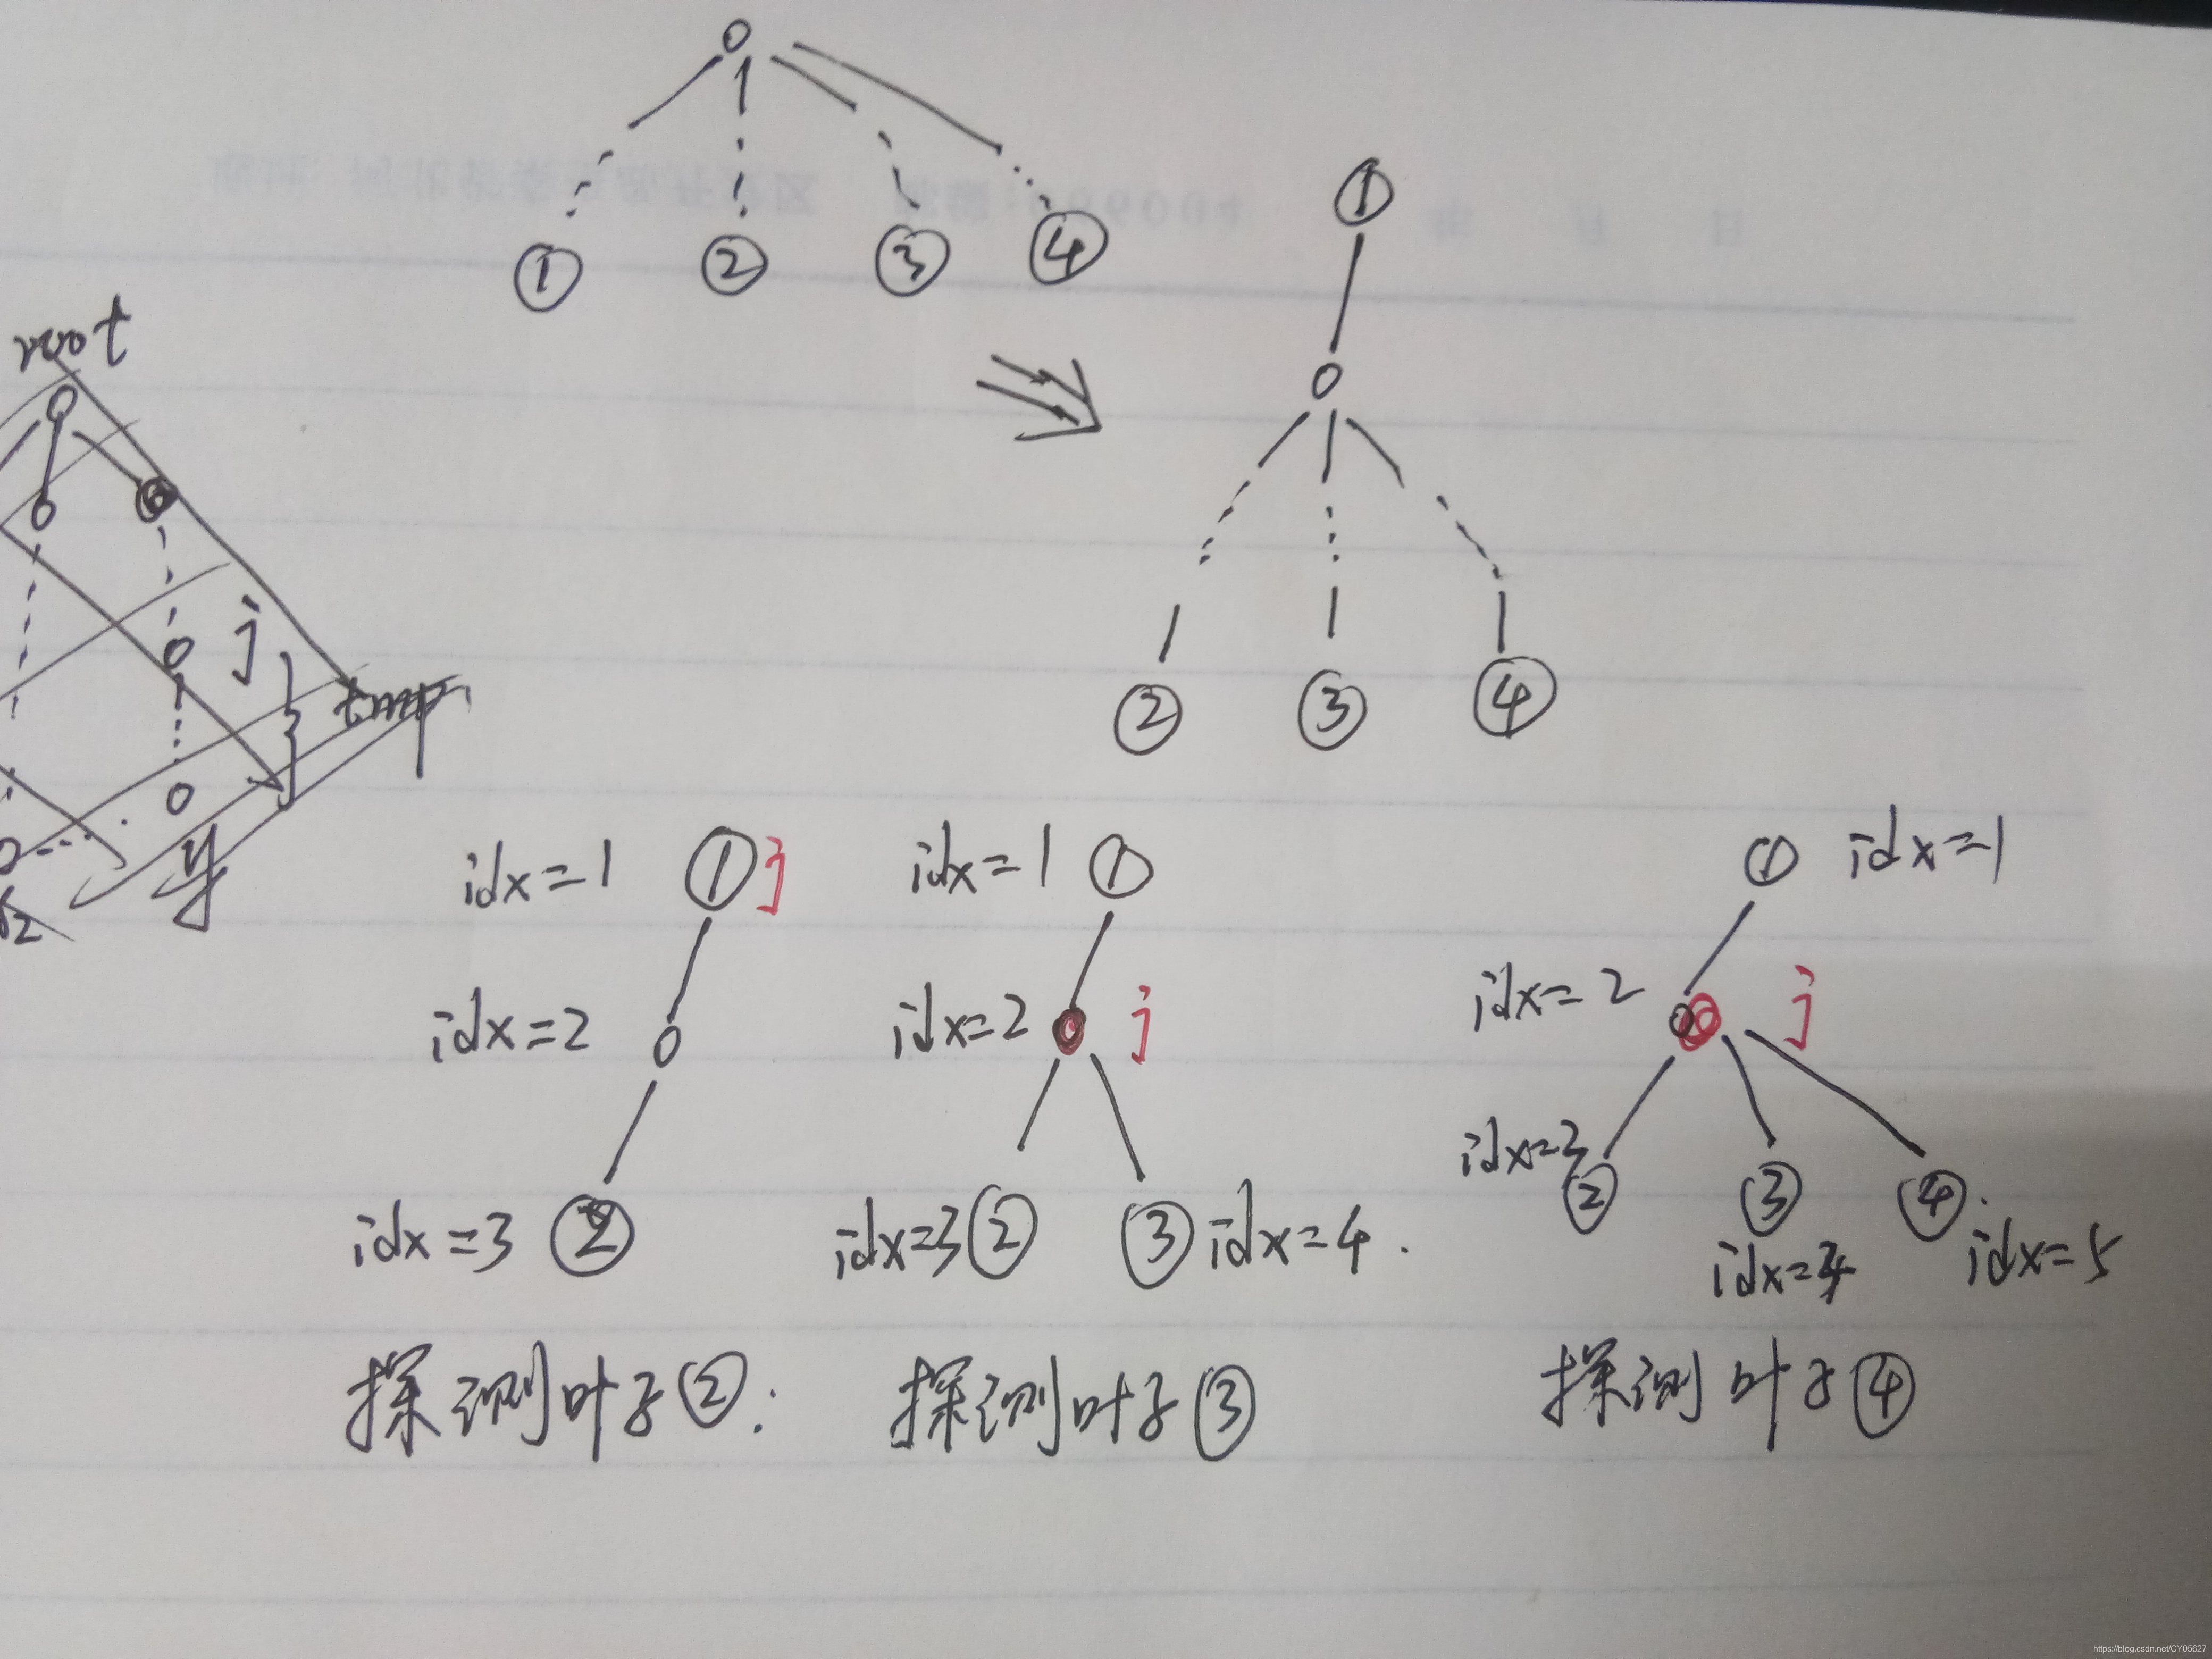 ① ② ③ ④
①
root
j
tmp
② ③ ④
y
idx=1 ① j
idx=2
idx=3 ②
探测叶子②:
idx=1 ①
idx=2 j
idx=3 ② ③ idx=4.
探测叶子③
① idx=1
idx=2 j
idx=3
② ③ ④.
idx=4
idx=5
探测叶子④
https://blog.csdn.net/CY05627